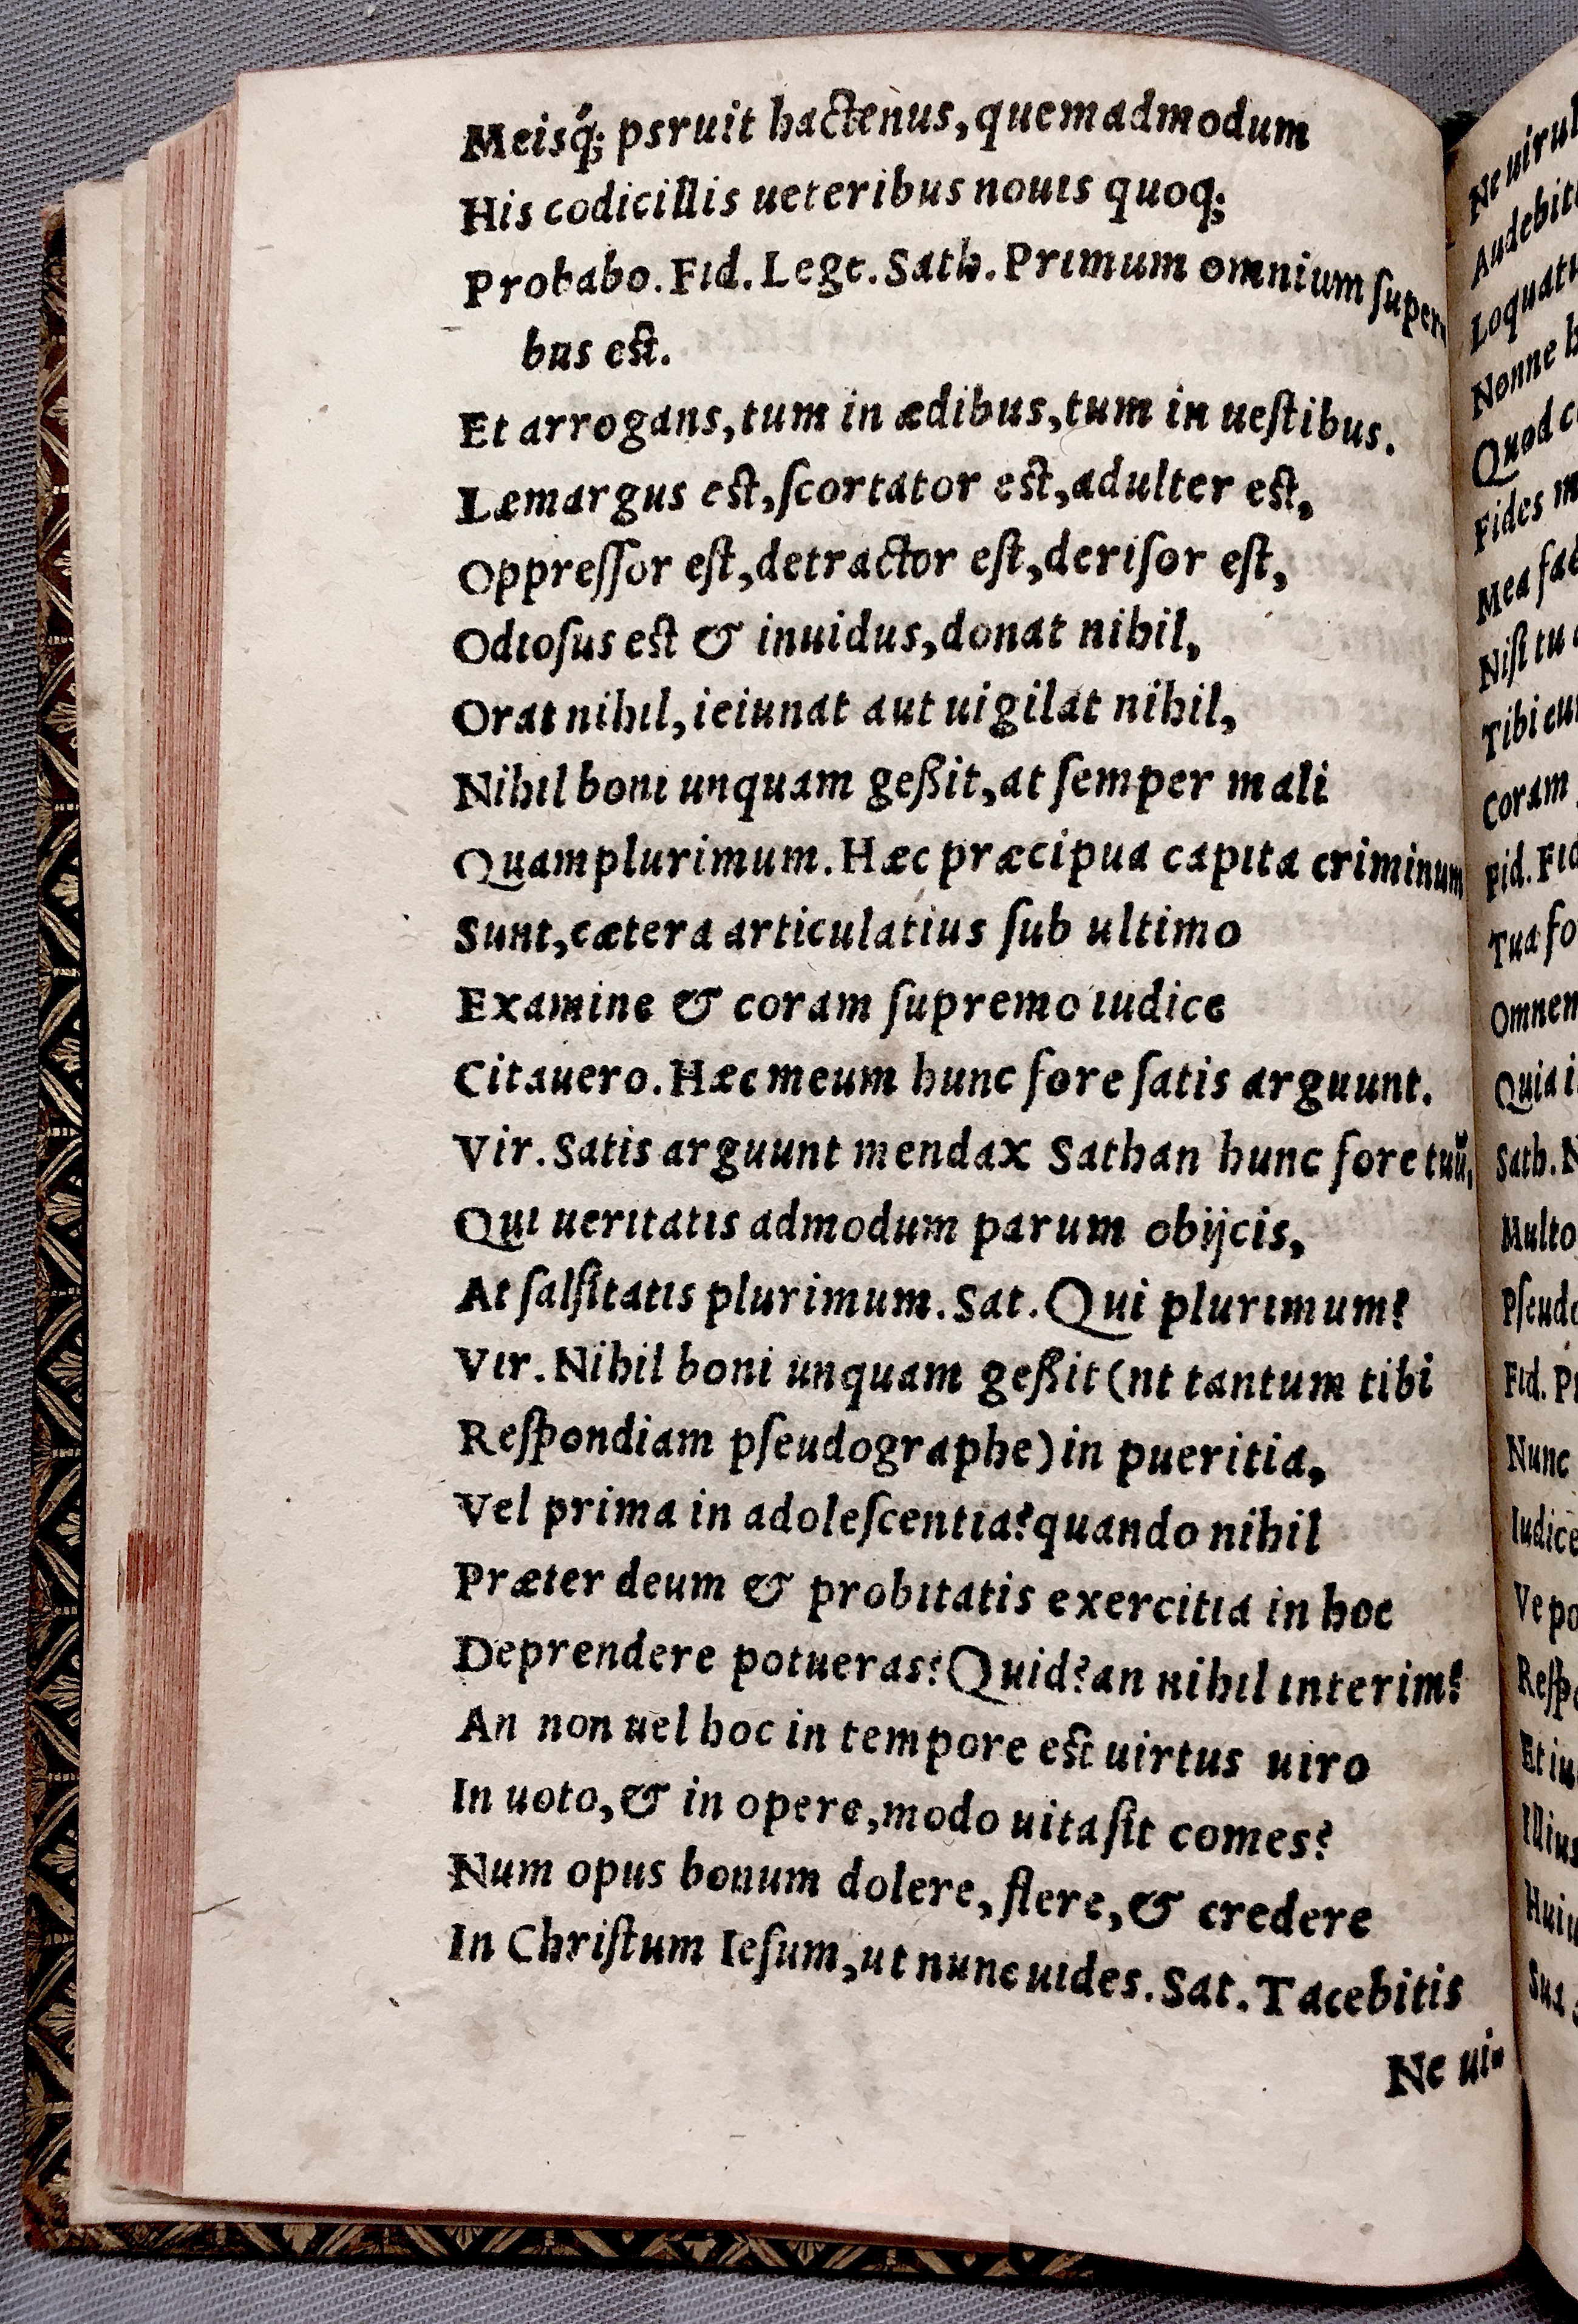 Meisq́; psruit hactenus, quemadmodum
His codicillis ueteribus nouis quoq;
Probabo. Fid. Lege. Sath. Primum omnium ſuper-
bus eſt.
Et arrogans, tum in ædibus, tum in ueſtibus.
Læmargus eſt, ſcortator eſt, adulter eſt,
Oppreſſor eſt, detractor eſt, deriſor eſt,
Odioſus eſt & inuidus, donat nihil,
Orat nihil, ieiunat aut uigilat nihil,
Nihil boni unquam geßit, at ſemper mali
Quamplurimum. Hæc præcipua capita criminum
Sunt, cætera articulatius ſub ultimo
Examine & coram ſupremo iudice
Citauero. Hæc meum hunc fore ſatis arguunt.
Vir. Satis arguunt mendax Sathan hunc fore tuũ,
Qui ueritatis admodum parum obijcis,
At falſitatis plurimum. Sat. Qui plurimum?
Vir. Nihil boni unquam geßit (nt tantum tibi
Reſpondiam pſeudographe) in pueritia,
Vel prima in adoleſcentia? quando nihil
Præter deum & probitatis exercitia in hoc
Deprendere potueras? Quid? an nihil interim?
An non uel hoc in tempore eſt uirtus uiro
In uoto, & in opere, modo uita ſit comes?
Num opus bonum dolere, flere, & credere
In Chriſtum Ieſum, ut nunc uides. Sat. Tacebitis
Ne ui-
Ne uirul
Audebit
Loquatu
Nonne h
Quod c
Fides m
Mea fac
Niſi tu
Tibi cu
Coram
Fid. Fid
Tua fo
Omnem
Quia i
Sath. N
Multo
Pſeudo
Fid. Pr
Nunc
Iudice
Ve po
Reſp
Et iu
Illius
Huiu
Sua